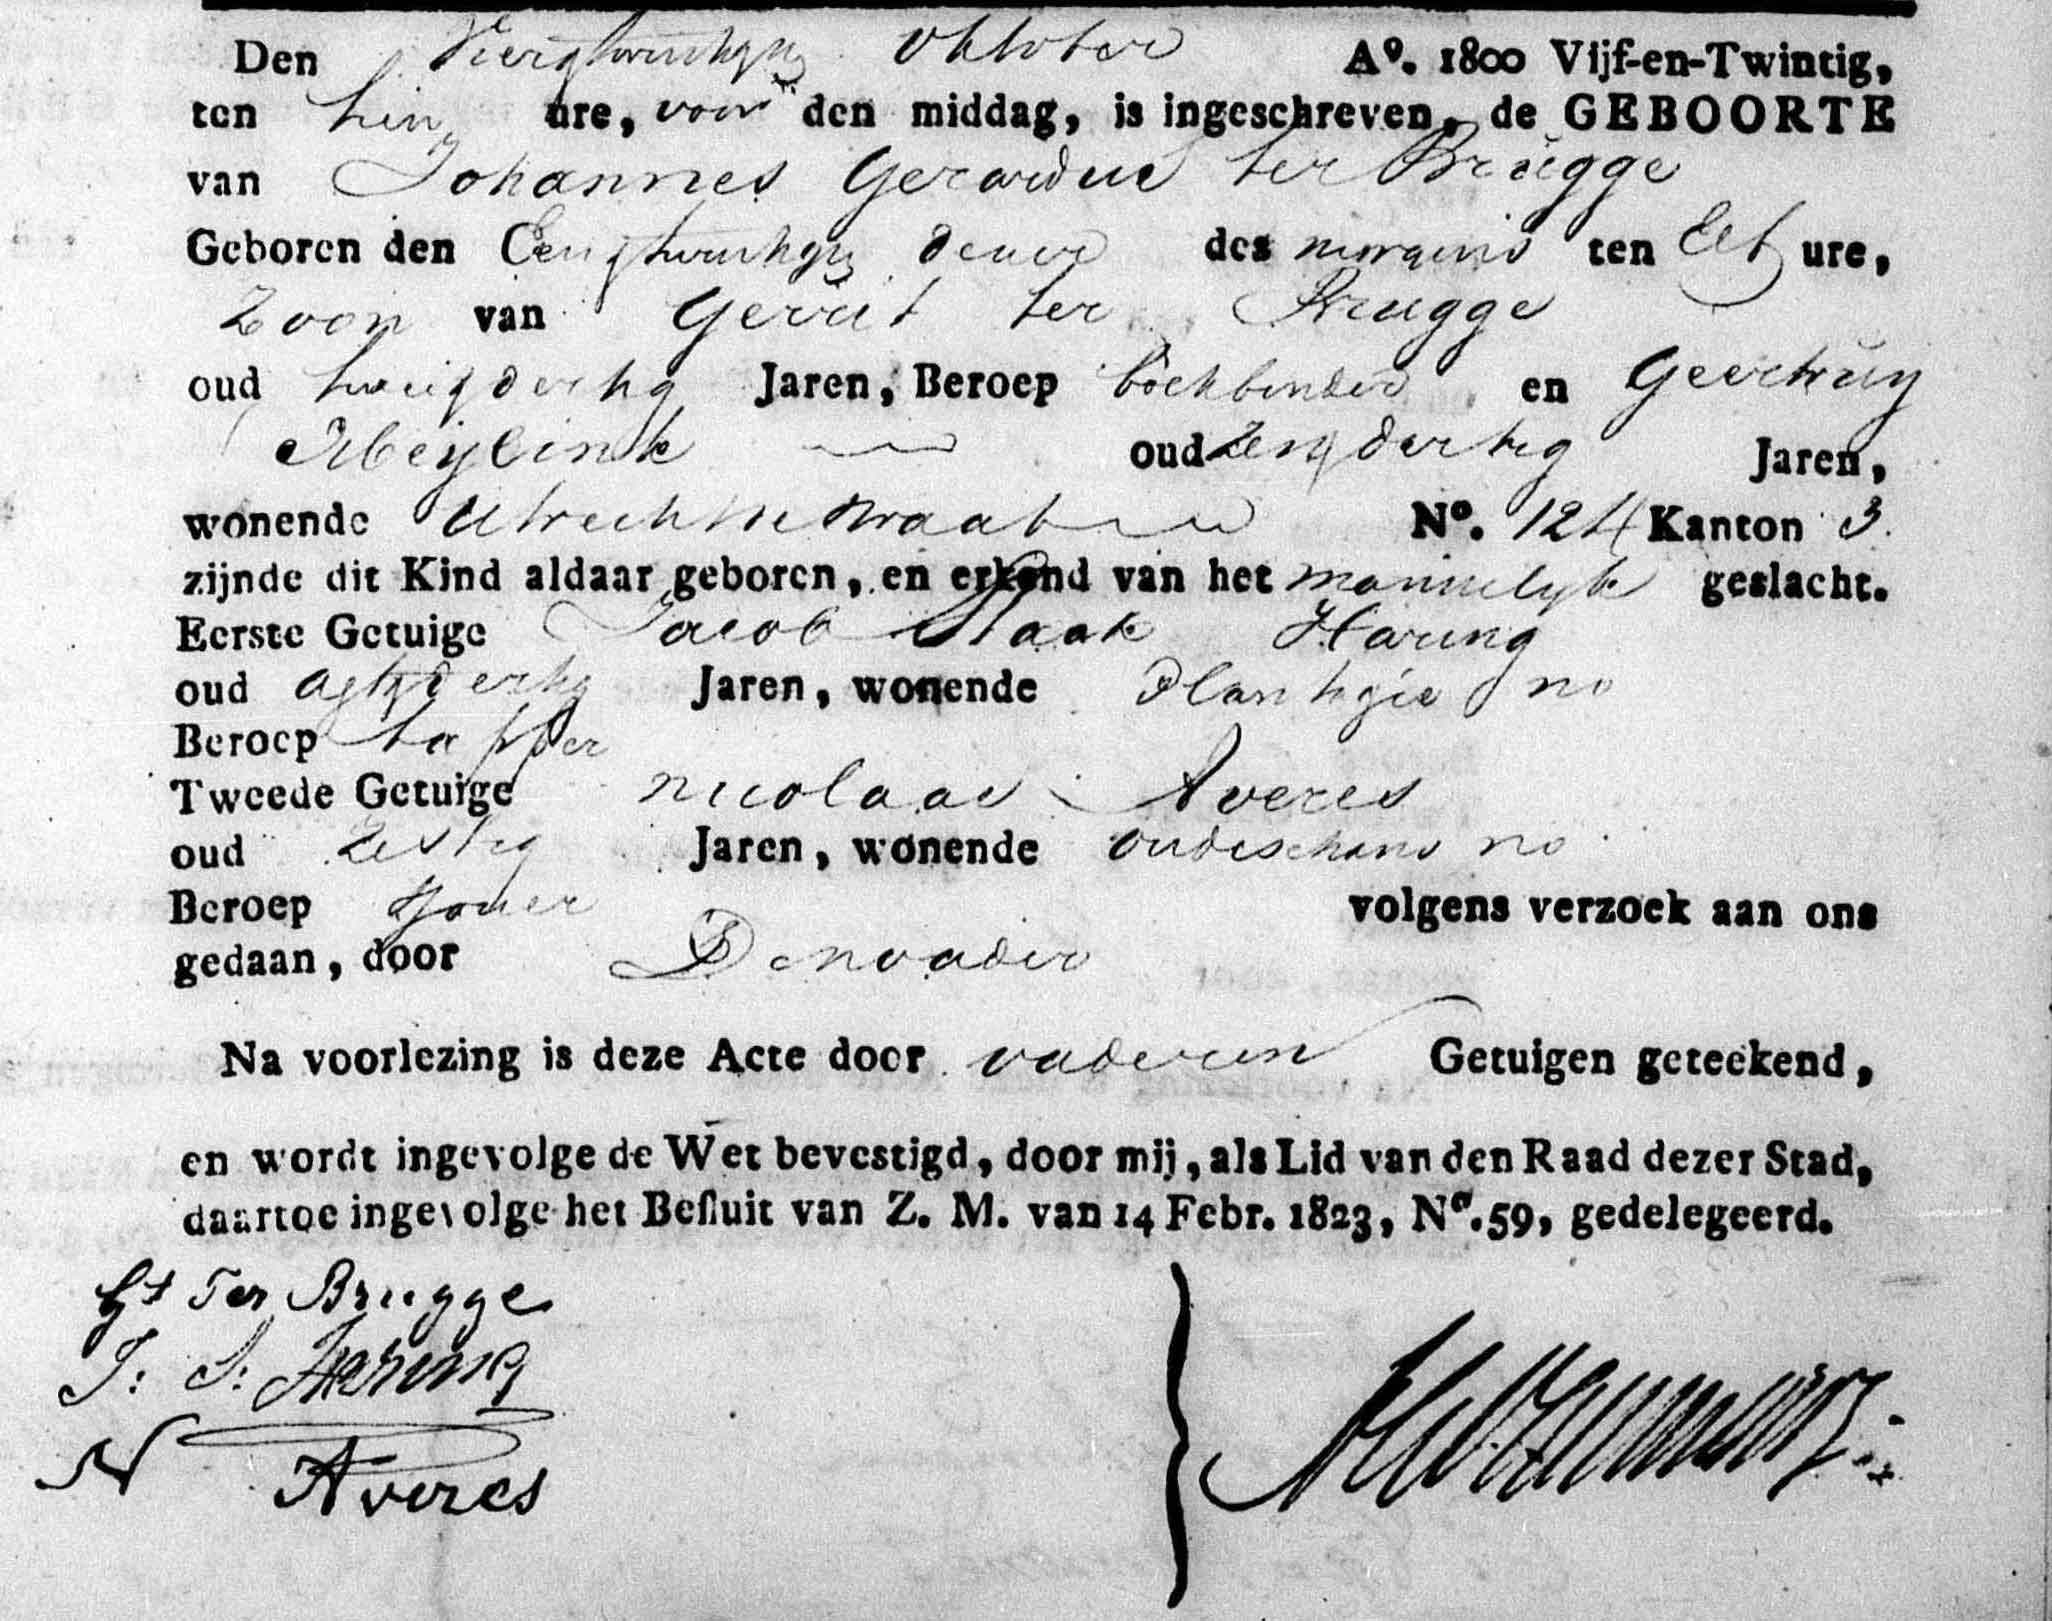 Den Vierentwintigste Oktober Aº. 1800 Vijf-en-Twintig,
ten tien ure, voor den middag, is ingeschreven, de GEBOORTE
van Johannes Gerardus ter Brugge
Geboren den Eenentwintigste dezer des morgens ten Elf ure,
Zoon van Gerrit ter Brugge
oud dertig Jaren, Beroep boekbinder en Geertruy
oud dertig Jaren,
wonende Utrechtsestraat Nº. 124 Kanton 3.
zijnde dit Kind aldaar geboren, en erkend van het mannelyk geslacht.
Eerste Getuige Jacob Slaak Haring
oud achtendertig Jaren, wonende Plantagie no
Beroep tapper
Tweede Getuige Nicolaas Averes
oud Zestig Jaren, wonende oudeschans no
Beroep volgens verzoek aan ons
gedaan, door De vader
Na voorlezing is deze Acte door vader en Getuigen geteekend,
en wordt ingevolge de Wet bevestigd, door mij, als Lid van den Raad dezer Stad,
daartoe ingevolge het Besluit van Z. M. van 14 Febr. 1823, Nº. 59, gedelegeerd.
Gt Ter Brugge
J: S: Haring
N Averes